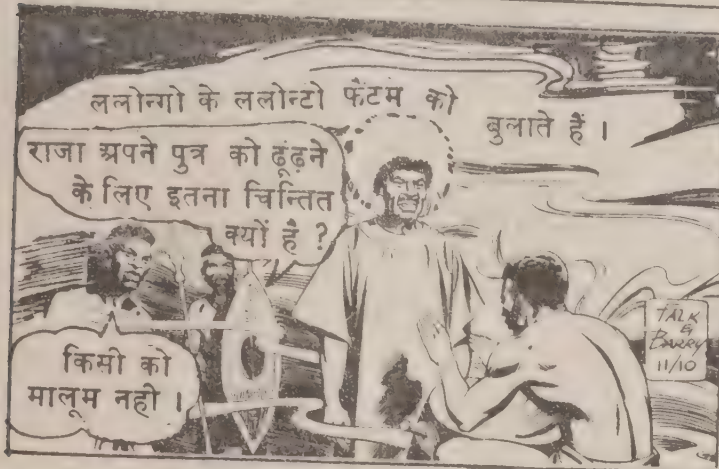 ललोन्गो के ललोन्टो फैंटम को
बुलाते हैं ।
राजा अपने पुत्र को ढूंढ़ने
के लिए इतना चिन्तित
क्यों है ?
किसी को
मालूम नही ।
TALK
&
BARRY
11/10